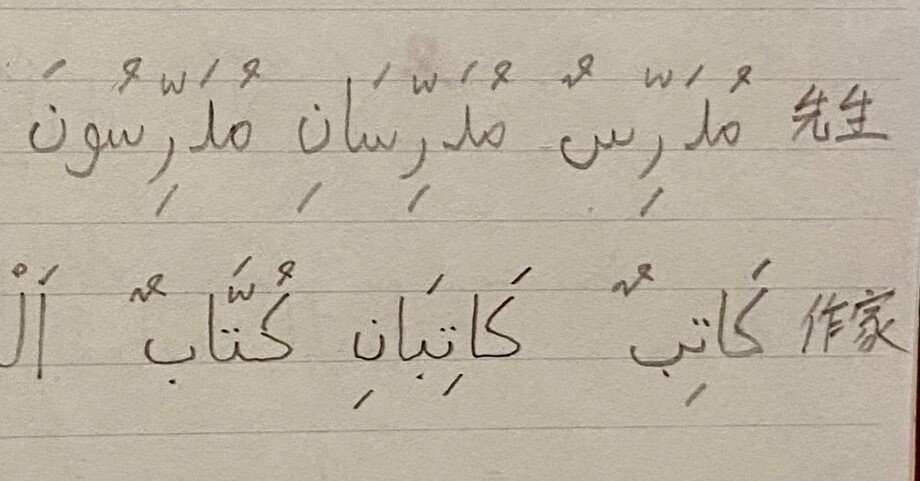 先生 مُدَرِّسٌ مُدَرِّسَانِ مُدَرِّسُونَ
作家 كَاتِبٌ كَاتِبَانِ كُتَّابٌ اَلْ